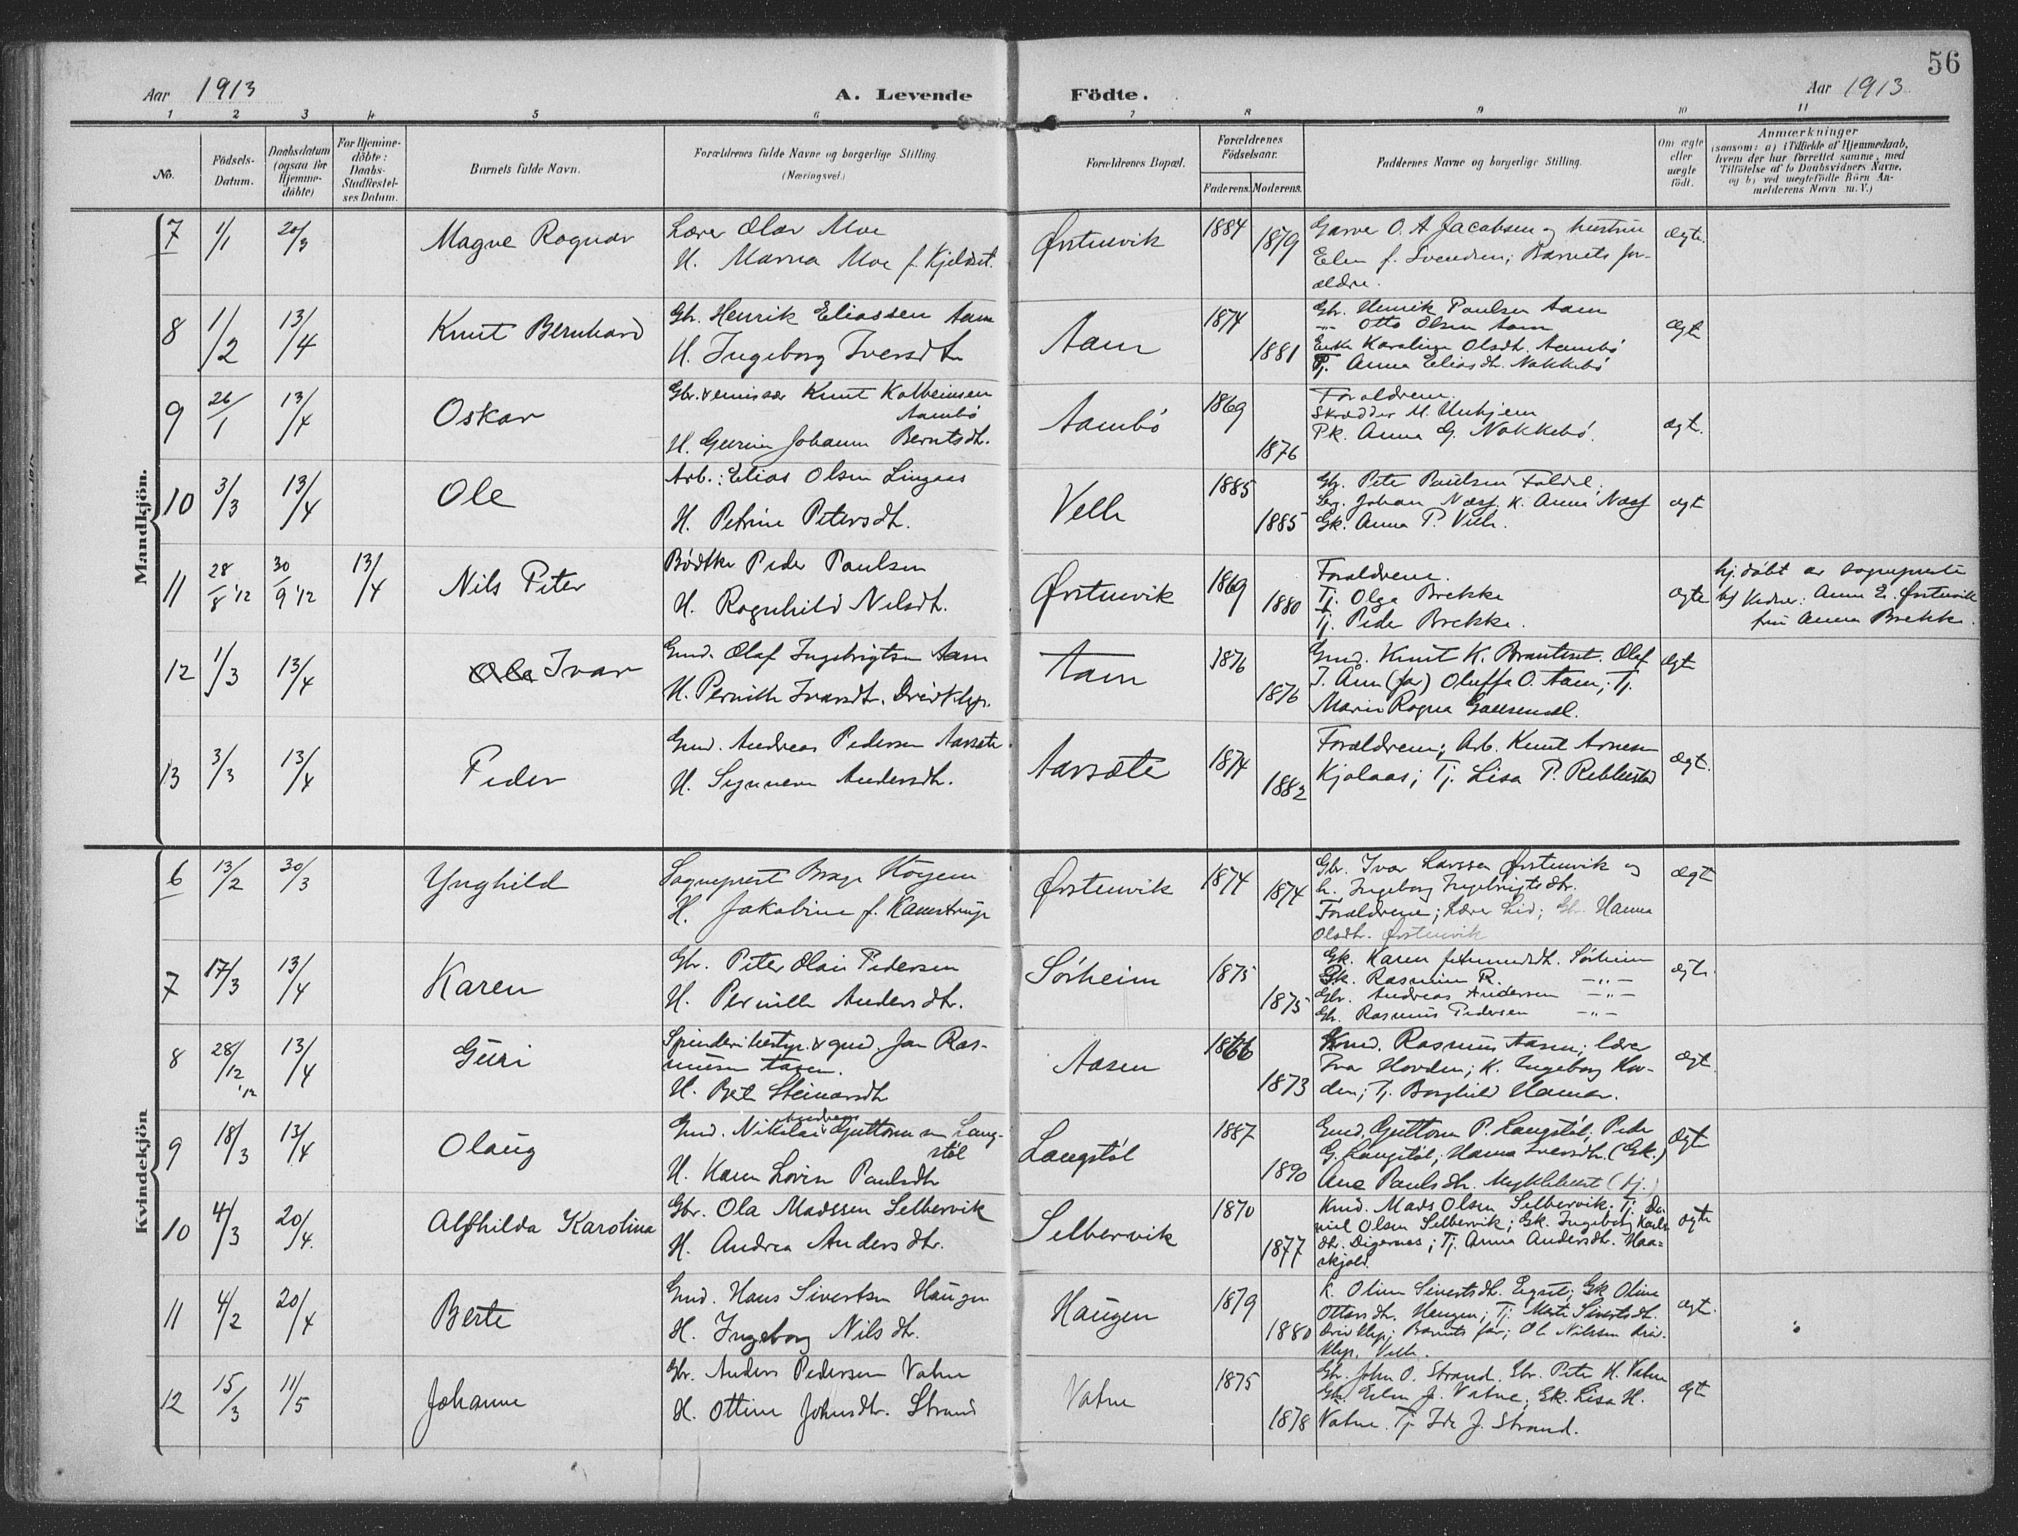 56
Aar 1913
A. Levende Födte.
Aar 1913.
1 2 3 4 5 6 7 8 9 10 11
No.
Födsels-
Datum.
Daabsdatum
(ogsaa for
Hjemme-
döbte)
For Hjemme-
döbte:
Daabs-
Stadfæstel-
ses Datum.
Barnets fulde Navn.
Forældrenes fulde Navne og borgerlige Stilling.
(Næringsvei.)
Forældrenes Bopæl.
Forældrenes
Födselsaar.
Faderens. Moderens.
Faddernes Navne og borgerlige Stilling.
Om ægte
eller
uægte
födt.
Anmærkninger
(saasom: a) i Tilfælde af Hjemmedaab,
hvem der har forrettet samme, med
Tilföielse af to Daabsvidners Navne,
og b) ved uægtefödte Börn An-
melderens Navn m. V.)
Mandkjön.
7 1/1 20/3 Magne Ragnar
Lærer Olav Moe
H. Marna Moe f. Kjeldset.
Ørstenvik 1884 1879
Garver O. A. Jacobsen og hustru
Elen f. Svendsen; Barnets for-
ældre.
ægte
8 1/2 13/4 Knut Bernhard
Gbr. Henrik Eliassen Aam
H. Ingeborg Iversdtr
Aam 1874 1881
Gbr. Henrik Paulsen Aam
-"- Otto Olsen Aam
Enke Karoline Olsdtr. Aambø
Tj. Anna Eliasdtr. Nakkebø
ægte
9 26/1 13/4 Oskar
Gbr. & emissær Knut Kolbeinsen
Aambø
H. Gurine Johanne Berntsdtr.
Aambø 1869 1876
Forældrene.
Skrædder M. Unhjem
Pk. Anna G. Nakkebø.
ægt.
10 3/3 13/4 Ole
Arb.: Elias Olsen Lingaas
H. Petrine Petersdtr.
Velle 1885 1885
Gbr. Peter Paulsen
Johan Næss, K. Anna Næss
Gk. Anna P. Velle.
ægt
11 28/8 '12 30/9 '12 13/4 Nils Peter
Bødtker Peder Paulsen
H. Ragnhild Nilsdtr.
Ørstenvik 1869 1880
Forældrene.
Tj. Olga Brekke
Tj. Peder Brekke.
ægte
hj. døbt av sogneprest
Anna E. Ørstenvik
fru Anna Brekke.
12 1/3 13/4 Ole Ivar
Gmd. Olaf Ingebrigtsen Aam
H. Pernille Ivarsdtr. Dreivklep.
Aam 1876 1876
Gmd. Knut K. Brauteset. Olaf
I. Aam (far) Oluffa O. Aam; Tj.
Marie Ragna
ægt
13 3/3 13/4 Peder
Gmd. Andreas Pedersen Aarsæte
H. Synneva Andersdtr.
Aarsæte 1874 1882
Forældrene; Arb. Knut Arnesen
Kjølaas; Tj. Lisa P. Rebbestad
ægt.
Kvindekjön
6 13/2 30/3 Ynghild
Sogneprest Brage Høyem
H. Jakobine f. Kamstrup
Ørstenvik 1874 1874
Gbr. Ivar Larssen Ørstenvik og
h. Ingeborg Ingebrigtsdtr.
Forældrene; Lærer Lid; Gbr. Hanna
Olsdtr. Ørstenvik
ægt
7 17/3 13/4 Karen
Gbr. Peter Olai Pedersen
H. Pernille Andersdtr.
Sørheim 1875 1875
Gk. Karen Sørheim
Gk. Rasmine R. -"-
Gbr. Andreas Andersen -"-
Gbr. Rasmus Pedersen -"-
ægt.
8 28/12 '12 13/4 Guri
Spinderibestyr. & gmd. Jon Ras-
mussen Aasen.
H. Berte Steinarsdtr
Aasen 1866 1873
Gmd. Rasmus Aasen; lærer
Ivar Hovden; K. Ingeborg Hov-
den; Tj. Borghild Hamar.
ægt.
9 18/3 13/4 Olaug
Andreas
Gmd. Nikolai Guttormsen Lang-
støl
H. Karen Lovise Paulsdtr
Langstøl 1887 1890
Gmd. Guttorm P. Langstøl; Peder
G. Langstøl; Hanna Iversdtr. (Gk.)
Ane Paulsdtr. Myklebust (tj.)
ægte
10 4/3 20/4. Alfhilda Karolina
Gbr. Ola Madssen Selbervik
H. Andrea Andersdtr.
Selbervik 1870 1877
Kmd. Mads Olsen Selbervik; Tj. Da-
niel Olsen Selbervik; Gk. Ingeborg Karls-
dtr. Digernes; Tj. Anna Andersdtr. Haa-
skjold.
ægte
11 4/2 20/4 Berte
Gmd. Hans Sivertsen Haugen
H. Ingeborg Nilsdtr.
Haugen 1879 1880
K. Oline Sivertsdtr. Egset; Gk. Oline
Ottarsdtr. Haugen; Tj. Marte Sivertsdtr.
Drivklep; Barnets far; Ole Nilssen Driv-
klep, Velle.
ægt.
12 15/3 11/5 Johanne
Gbr. Anders Pedersen Vatne
H. Ottine Johnsdtr. Strand
Vatne 1875 1878
Gbr. John O. Strand. Gbr. Peter H. Vatne
Gbr. Elen J. Vatne; Gk. Lisa H.
Vatne. Tj. Ida J. Strand.
ægt